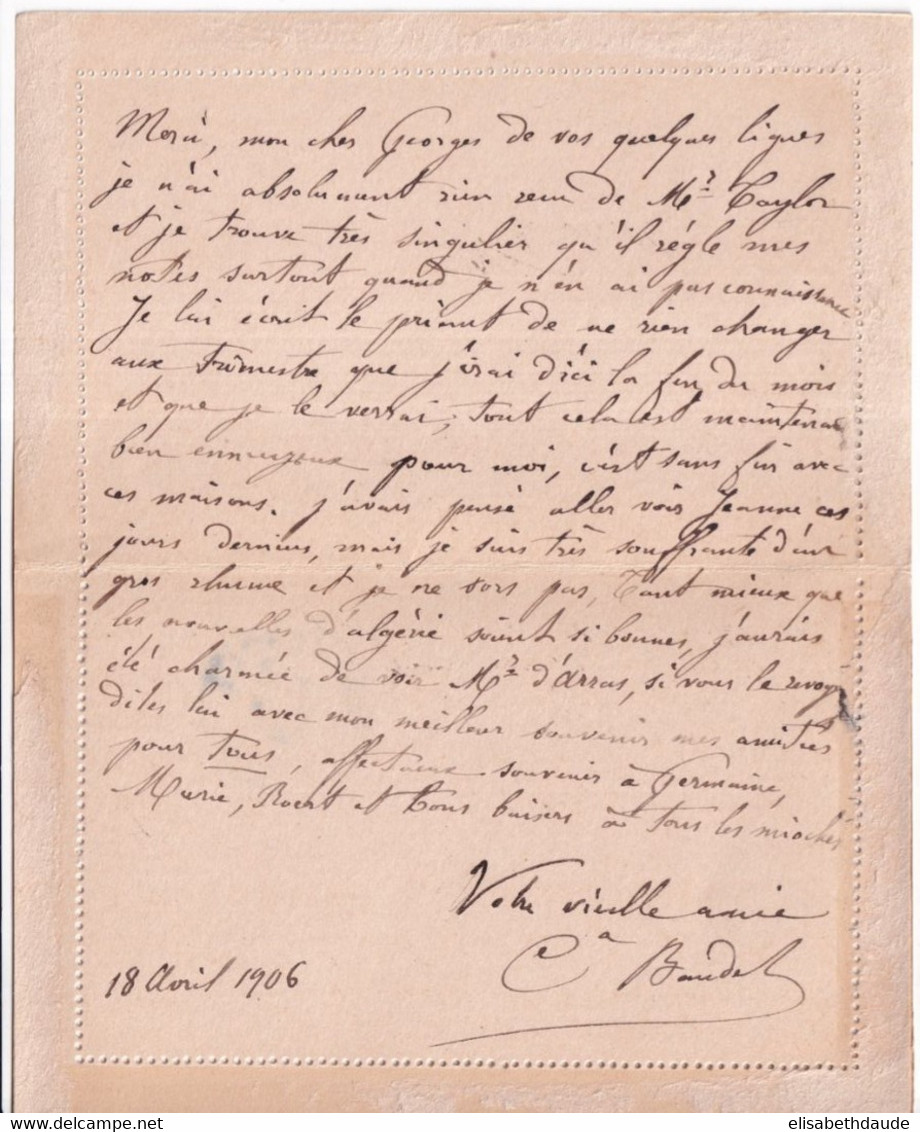 Merci, mon cher Georges de vos quelques lignes
je n'ai absolument rien recu de Mr Taylor
et je trouve très singulier qu'il régle mes
notes surtout quand je n'en ai pas connaissance
Je lui écrit le priant de ne rien changer
aux trimestre que j'irai d'ici la fin du mois
et que je le verrai, tout cela est maintenant
bien ennuyeux pour moi, c'est sans fin avec
ces maisons. j'avais pensé aller voir Jeanne ces
jours derniers, mais je suis très souffrante d'un
gros rhume et je ne sors pas, Tant mieux que
les nouvelles d'algérie soient si bonnes, j'aurais
été charmée de voir Mr d'Arras, si vous le revoyez
dites lui avec mon meilleur souvenir mes amitiés
pour tous, affectueux souvenir à Germaine,
Marie, et bons baisers à tous les mioches
Votre vieille amie
Ca Baudel
18 Avril 1906
elisabethdaude